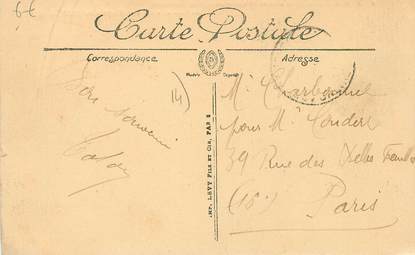 6€
Carte Postale
Correspondance
Adresse
Modèle Déposé
14
Bon souvenir
IMP. LEVY FILS ET CIE, PARIS
Mr Charbonnel
pour Mr Coudert
39 Rue des Belles Feuilles
(16e)
Paris